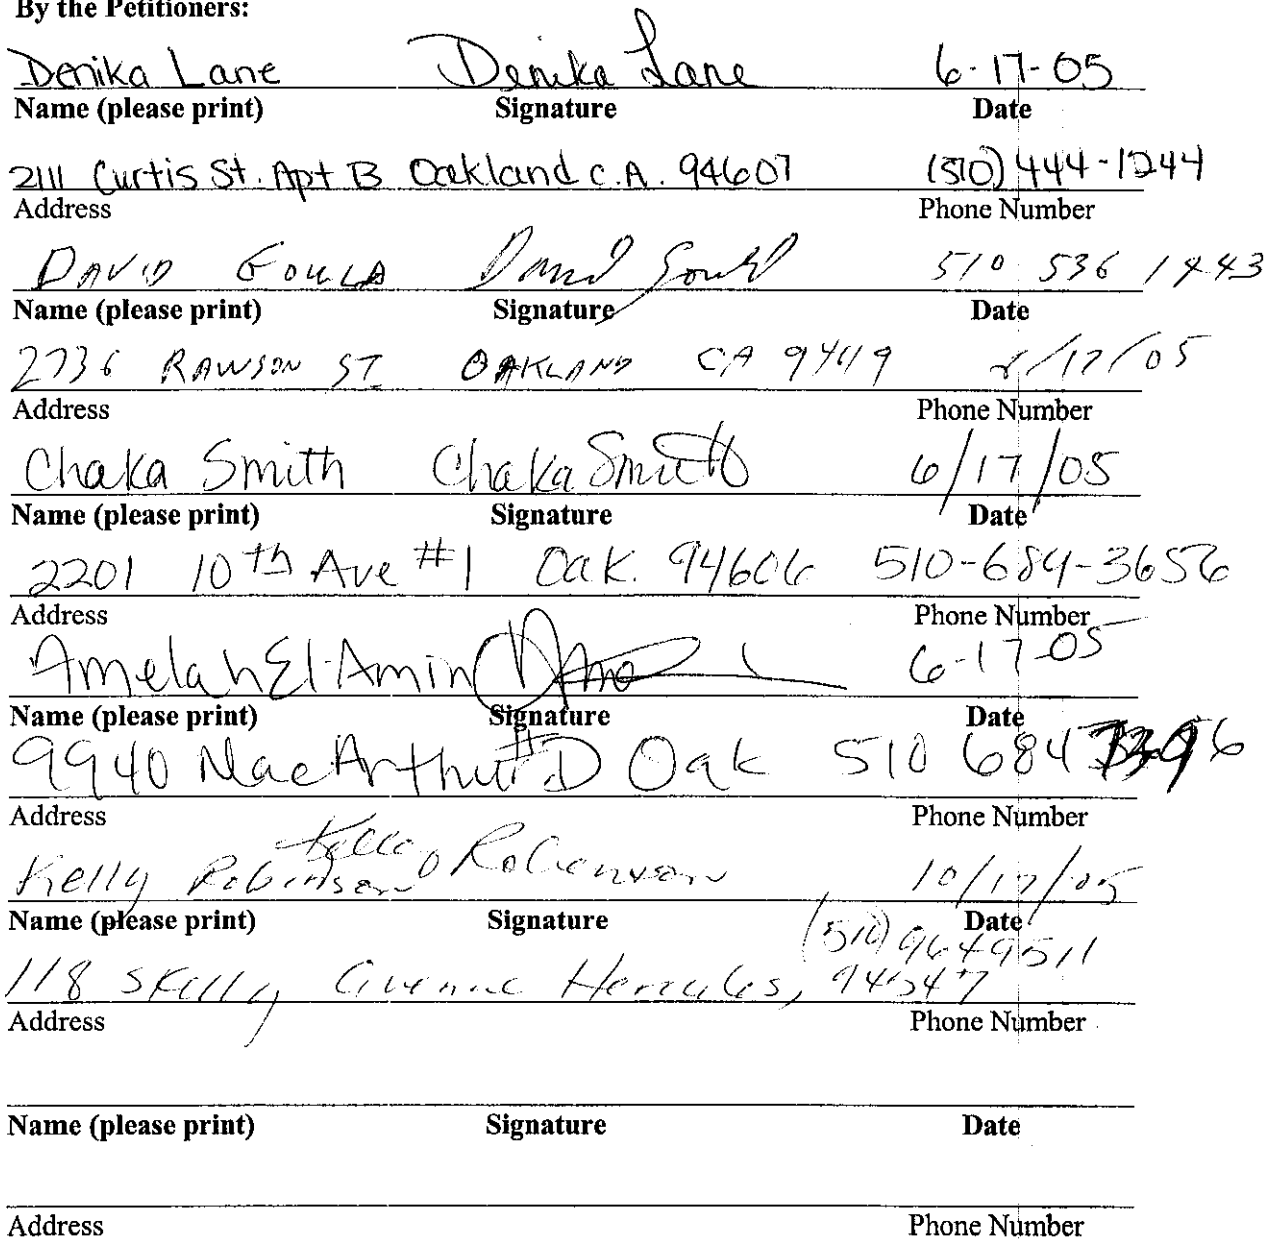 By the Petitioners:
Denika Lane Denika Lane 6-17-05
Name (please print) Signature Date
2111 Curtis St. Apt B Oakland C.A. 94607 (510) 444-1244
Address Phone Number
DAVID GOULD David Gould 510 536 1443
Name (please print) Signature Date
2736 RAWSON ST. OAKLAND CA 94619 6/17/05
Address Phone Number
Chaka Smith Chaka Smith 6/17/05
Name (please print) Signature Date
2201 10th Ave #1 Oak. 94606 510-684-3656
Address Phone Number
Amelah El-Amin 6-17-05
Name (please print) Signature Date
9940 MacArthur #D Oak 510 684
Address Phone Number
Kelly Robinson Kelly Robinson 10/17/05
Name (please print) Signature Date
(510) 9649511
118 Skelly Avenue Hercules, 94547
Address Phone Number
Name (please print) Signature Date
Address Phone Number